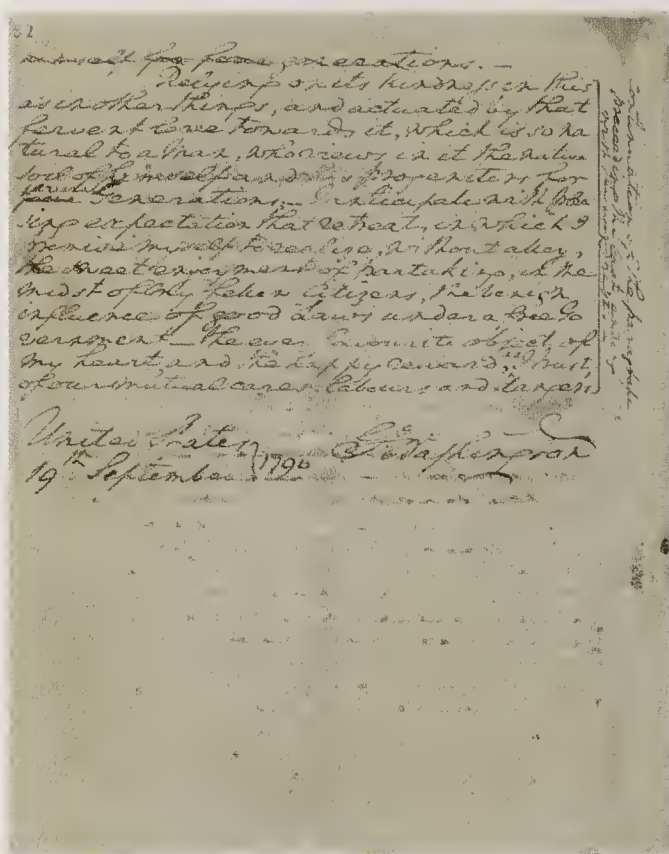 32
himself for four generations. —
Relying on its kindness in this
as in other things, and actuated by that
fervent love towards it, which is so na
tural to a Man, who views in it the native
soil of himself and his progenitors for
four Generations; — I anticipate with plea
sing expectation that retreat, in which I
promise myself to realize, without alloy,
the sweet enjoyment of partaking, in the
midst of my fellow Citizens, the benign
influence of good Laws under a free Go
vernment — the ever favourite object of
my heart, and the happy reward, as I trust,
of our mutual cares, labours and dangers.
United States
19th September } 1796
Go Washington
continuation of the paragraph
preceding the